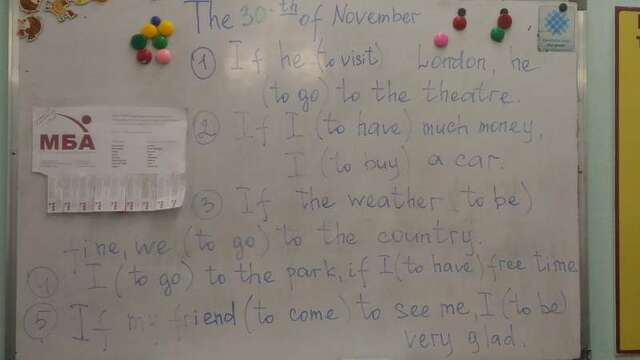 The 30th of November
① If he (to visit) London, he
(to go) to the theatre.
② If I (to have) much money,
I (to buy) a car.
③ If the weather to be)
fine, we (to go) to the country.
④ I (to go) to the park, if I (to have) free time
⑤ If my friend (to come) to see me, I (to be)
very glad.
МБА